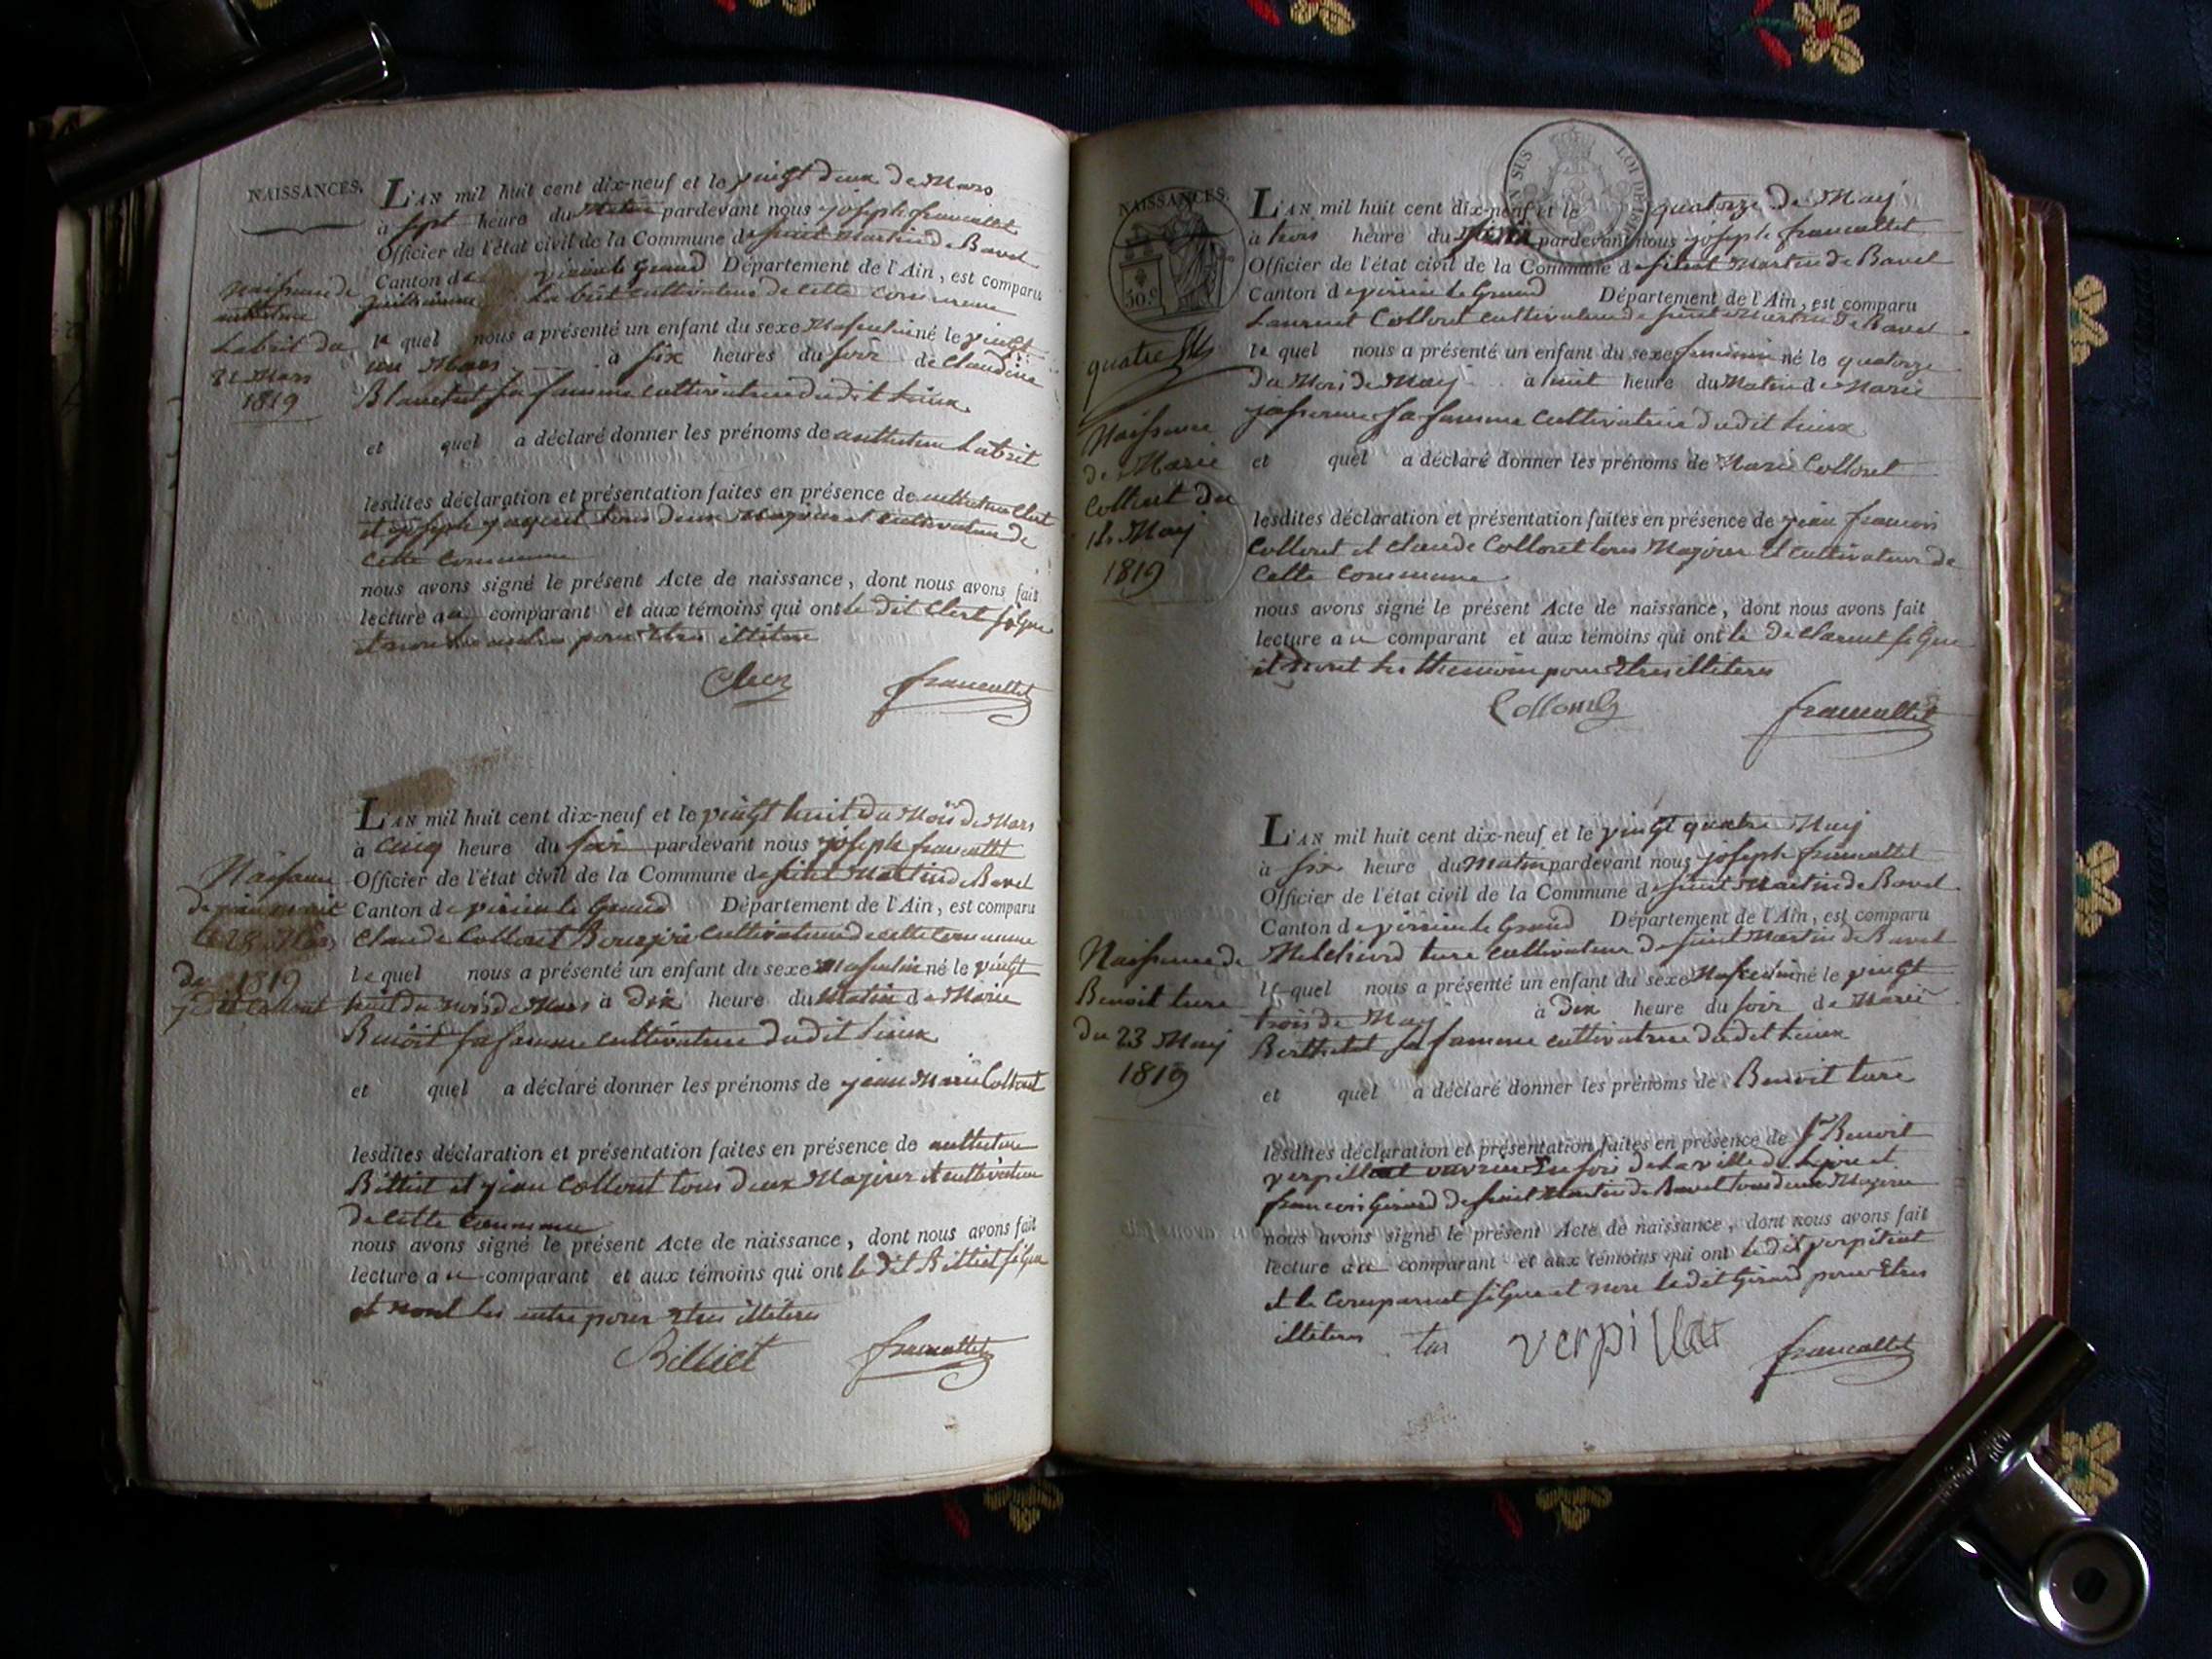 NAISSANCES.
L'AN mil huit cent dix-neuf et le vingt deux de Mars
à sept heure du Matin pardevant nous joseph francallet
Officier de l'état civil de la Commune de saint Martin de Bavel
Canton de virieu le Grand Département de l'Ain, est comparu
Labeit cultivateur de cette commune
le quel nous a présenté un enfant du sexe Masculin né le vingt
un Mars à six heures du soir de Claudine
sa famme cultivatrice du dit lieux
et quel a déclaré donner les prénoms de
lesdites déclaration et présentation faites en présence de
et joseph tous deux Majeur et cultivateur de
cette commune
nous avons signé le présent Acte de naissance, dont nous avons fait
lecture au comparant et aux témoins qui ont le dit Clert signe
et non les autres pour etres illitere
francallet
Naissance de
Labrit du
21 Mars
1819
L'AN mil huit cent dix-neuf et le vingt huit du Mois de Mars
à cinq heure du soir pardevant nous joseph francallet
Officier de l'état civil de la Commune de saint Martin de Bavel
Canton de virieu le Grand Département de l'Ain, est comparu
Claude Collont cultivateur de cette commune
le quel nous a présenté un enfant du sexe Masculin né le vingt
huit du mois de Mars à Dix heure du Matin de Marie
Benoit sa famme cultivatrice du dit lieux
et quel a déclaré donner les prénoms de jean Marie Collont
lesdites déclaration et présentation faites en présence de
Billiet et jean Collont tous deux Majeur et cultivateur
de cette commune
nous avons signé le présent Acte de naissance, dont nous avons fait
lecture au comparant et aux témoins qui ont le dit Billiet signe
et nont les autre pour etres illiteres
Billiet francallet
Naissance
1819
NAISSANCES.
50 c
quatre
L'AN mil huit cent dix-neuf et le quatorze de May
à trois heure du pardevant nous joseph francallet
Officier de l'état civil de la Commune de saint Martin de Bavel
Canton de virieu le Grand Département de l'Ain, est comparu
Laurent Collont cultivateur de saint Martin de Bavel
le quel nous a présenté un enfant du sexe feminin né le quatorze
du Mois de May à huit heure du Matin de Marie
sa famme cultivatrice du dit lieux
et quel a déclaré donner les prénoms de Marie Collont
lesdites déclaration et présentation faites en présence de jean francois
Collont et Claude Collont tous Majeur et cultivateur de
cette commune
nous avons signé le présent Acte de naissance, dont nous avons fait
lecture au comparant et aux témoins qui ont le declarent signe
et nont les themoin pour etres illiteres
Collomb francallet
Naissance
de Marie
Collont du
14 May
1819
L'AN mil huit cent dix-neuf et le vingt quatre May
à six heure du Matin pardevant nous joseph francallet
Officier de l'état civil de la Commune de saint Martin de Bavel
Canton de virieu le Grand Département de l'Ain, est comparu
Melchiord ture cultivateur de saint Martin de Bavel
le quel nous a présenté un enfant du sexe Masculin né le vingt
trois de May à Dix heure du soir de Marie
Berthelet sa famme cultivatrice du dit lieux
et quel a déclaré donner les prénoms de Benoit ture
lesdites déclaration et présentation faites en présence de Sr Benoit
verpillat ouvrier de la ville de et
francois Girard de saint Martin de Bavel tous deux Majeur
nous avons signé le présent Acte de naissance, dont nous avons fait
lecture au comparant et aux témoins qui ont le dit verpillat
et le comparant signe et non le dit Girard pour etres
illiteres tur verpillat francallet
Naissance de
Benoit ture
du 23 May
1819